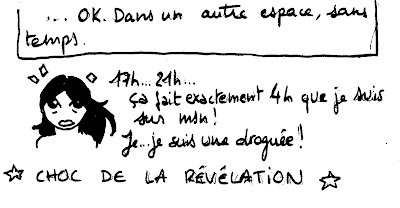 ... OK. Dans un autre espace, sans
temps.
17h... 21h...
ça fait exactement 4h que je suis
sur msn !
Je... je suis une droguée !
☆ CHOC DE LA RÉVÉLATION ☆